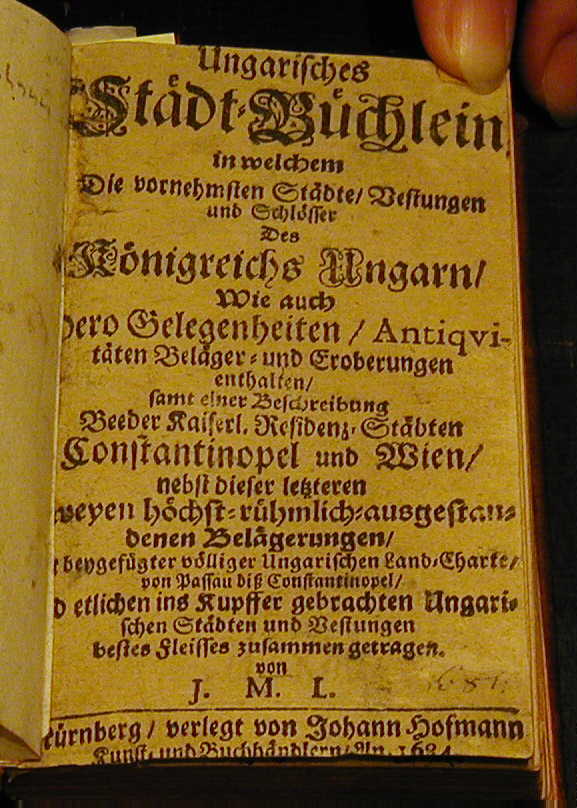 Ungarisches
Städt-Büchlein
in welchem
Die vornehmsten Städte/ Vestungen
und Schlösser
Des
Königreichs Ungarn/
Wie auch
dero Gelegenheiten / Antiqvi-
täten Beläger- und Eroberungen
enthalten/
samt einer Beschreibung
Beeder Kaiserl. Residenz-Städten
Constantinopel und Wien/
nebst dieser letzteren
zweyen höchst-rühmlich-ausgestan-
denen Belägerungen/
beygefügter völliger Ungarischen Land-Charte/
von Passau biß Constantinopel/
etlichen ins Kupffer gebrachten Ungari-
schen Städten und Vestungen
bestes Fleisses zusammen getragen.
von
J. M. L.
Nürnberg/ verlegt von Johann Hofmann
Kunst- und Buchhändlern/ An. 1684